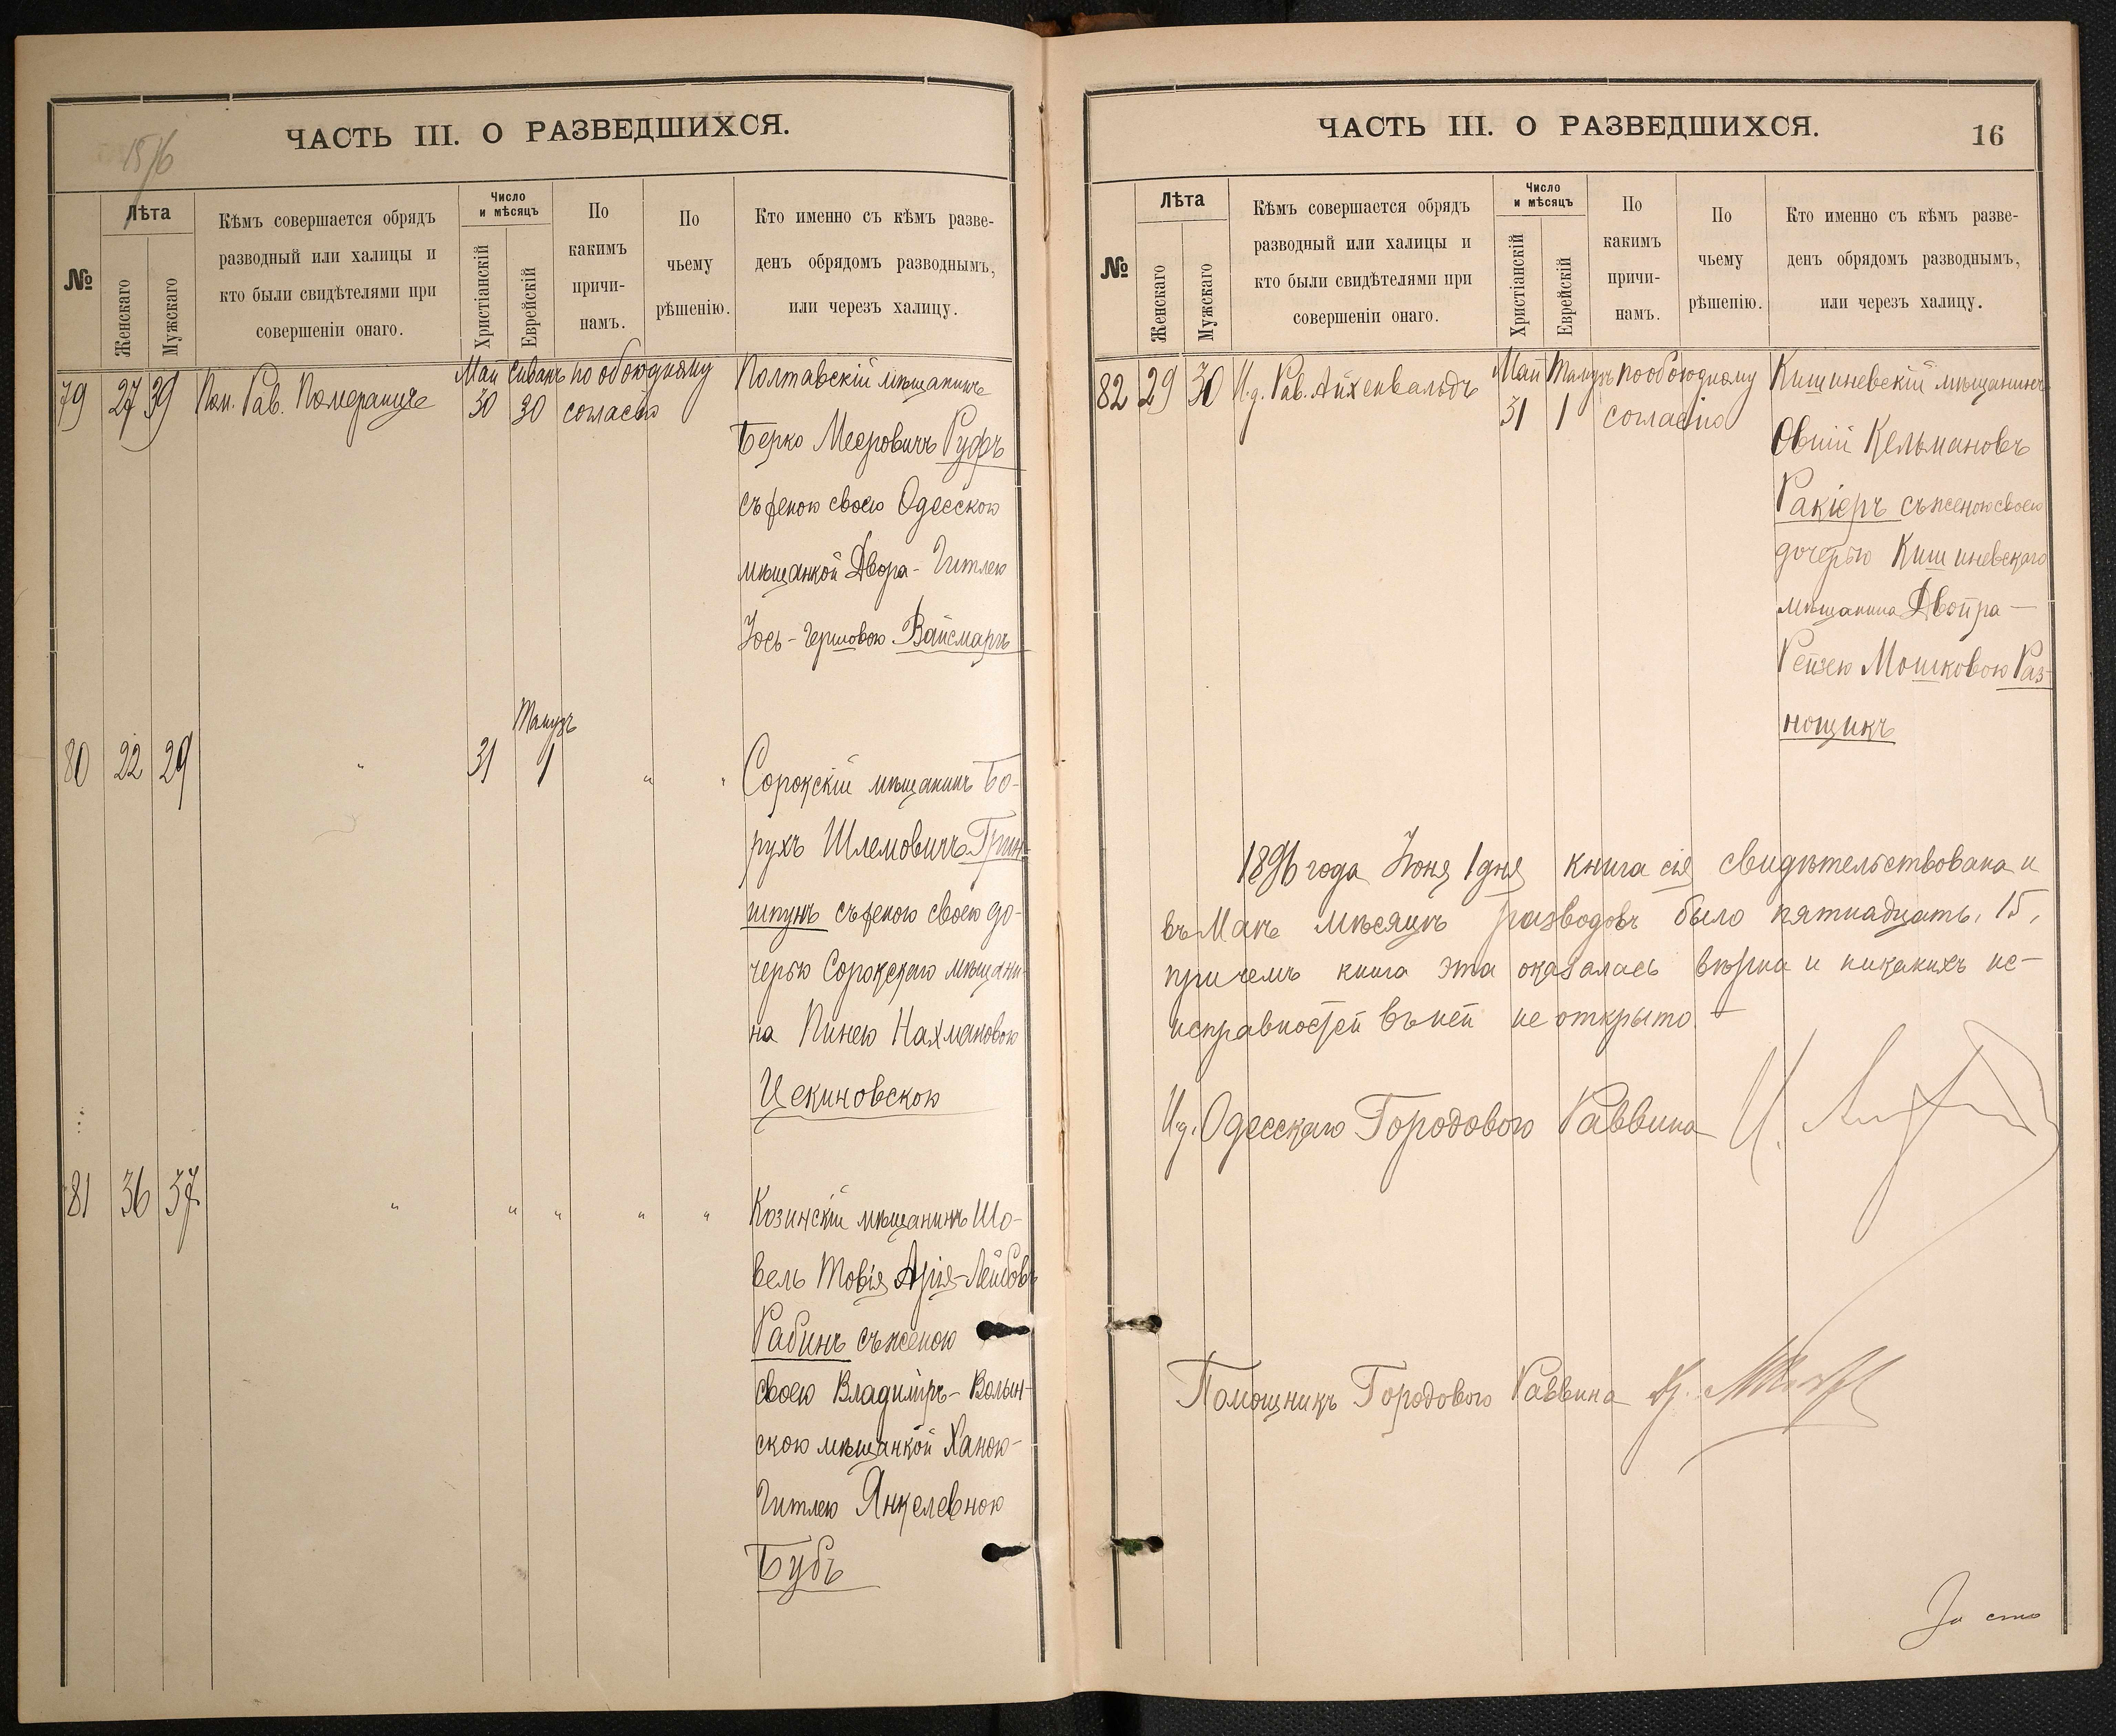 ЧАСТЬ III. О РАЗВЕДШИХСЯ.
№
Лѣта
Женскаго
Мужскаго
Кѣмъ совершается обрядъ
разводный или халицы и
кто были свидѣтелями при
совершеніи онаго.
Число
и мѣсяцъ
Христіанскій
Еврейскій
По
какимъ
причи-
намъ.
По
чьему
рѣшенію.
Кто именно съ кѣмъ разве-
денъ обрядомъ разводнымъ,
или черезъ халицу.
79 27 39 Пом. Рав. Померанцъ Май 30 Сиванъ 30 по обоюдному
согласію
Полтавскій мѣщанинъ
Берко Мееровичъ Руфъ
съ женою своею Одесскою
мѣщанкой Двора-Гитлею
Іось-Гершовою Вайсмаръ
Тамузъ
80 22 29 " 31 1 " "
Сорокскій мѣщанинъ Бо-
рухъ Шлемовичъ Грин-
шпунъ съ женою своею до-
черью Сорокскаго мѣщани-
на Пинею Нахмановою
Цекиновскою
81 36 37 " " " " "
Козинскій мѣщанинъ Шо-
вель Товія Арія-Лейбовъ
Рабинъ съ женою
своею Владиміръ-Волын-
скою мѣщанкой Ханою-
Гитлею Янкелевною
Бубъ
ЧАСТЬ III. О РАЗВЕДШИХСЯ. 16
№
Лѣта
Женскаго
Мужскаго
Кѣмъ совершается обрядъ
разводный или халицы и
кто были свидѣтелями при
совершеніи онаго.
Число
и мѣсяцъ
Христіанскій
Еврейскій
По
какимъ
причи-
намъ.
По
чьему
рѣшенію.
Кто именно съ кѣмъ разве-
денъ обрядомъ разводнымъ,
или черезъ халицу.
82 29 30 И.д. Рав. Айхенвальдъ Май 31 Тамузъ 1 по обоюдному
согласію
Кишиневскій мѣщанинъ
Овшій Кельмановъ
Ракіеръ съ женою своею
дочерью Кишиневскаго
мѣщанина Двойра-
Рейзею Мошковою Раз-
нощикъ
1896 года Іюня 1 дня книга сія свидѣтельствована и
въ Маѣ мѣсяцѣ разводовъ было пятнадцать, 15,
причемъ книга эта оказалась вѣрна и никакихъ не-
исправностей въ ней не открыто.
И.д. Одесскаго Городового Раввина
Помощникъ Городового Раввина